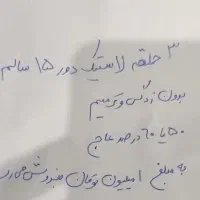 ۳ حلقه لاستیک دور ۱۵ سالم
بدون زدگی و ترمیم
۵۰ یا ۶۰ درصد عاج
به مبلغ ۱ میلیون تومان بفروش می‌رسد